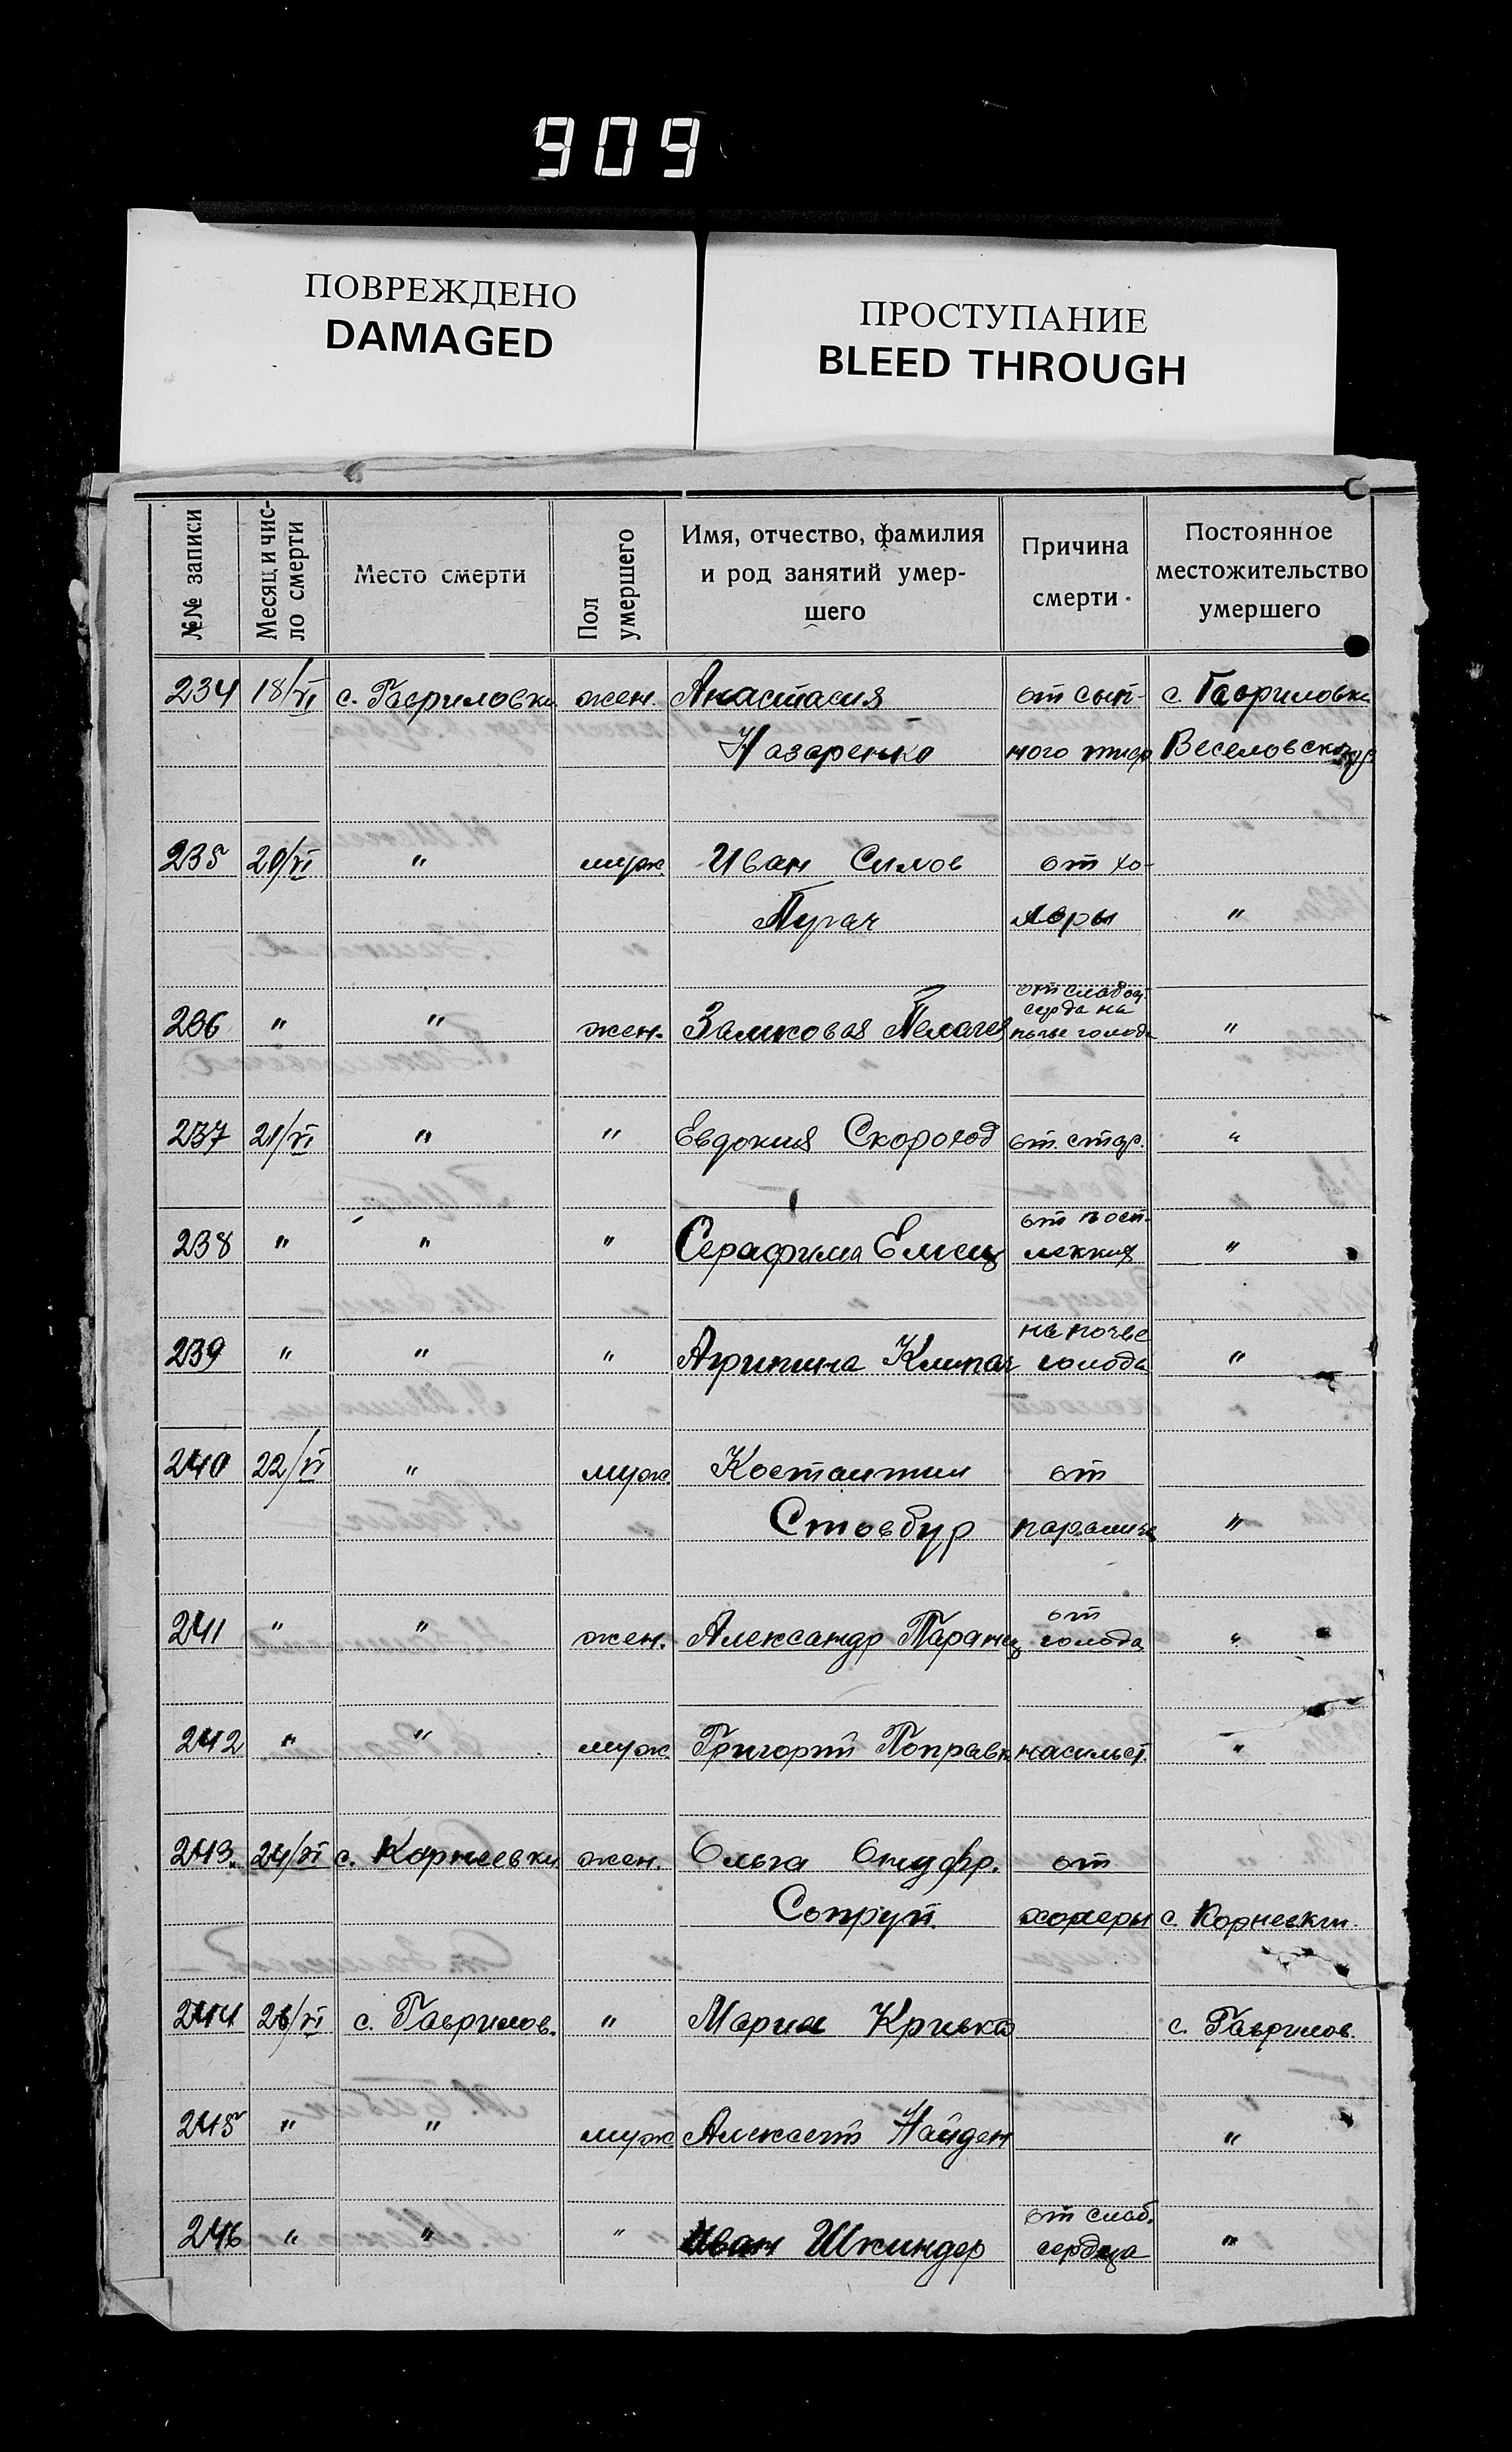 909
ПОВРЕЖДЕНО
DAMAGED
ПРОСТУПАНИЕ
BLEED THROUGH
№№ записи
Месяц и чис-
ло смерти
Место смерти
Пол
умершего
Имя, отчество, фамилия
и род занятий умер-
шего
Причина
смерти
Постоянное
местожительство
умершего
234 18/VI с. Гавриловки жен. Анастасия от сып- с. Гавриловки
Назаренко ного тифа Веселовск
235 20/VI " муж Иван Силов от хо-
Пугач леры "
от слабост.
серда на
236 " " жен. Замковая Пелагея почве голода "
237 21/VI " " Евдокия Скороход от. стар. "
от восп.
238 " " " Серафима Емец легких "
на почве
239 " " " Агрипина Клипач голода "
240 22/VI " муж Костантин от
Стовбур паралича "
от
241 " " жен. Александр Таранец голода "
242 " " муж Григорий Поправк насильст. "
243. 24/VI с. Корнеевки жен. Ольга от
Сопрун. холеры с. Корнеевки.
244 26/VI с. Гаврилов. " Мария Кривко с. Гаврилов.
245 " " муж Алексей Найден "
от слаб.
246 " " " Иван Шкиндер сердца "